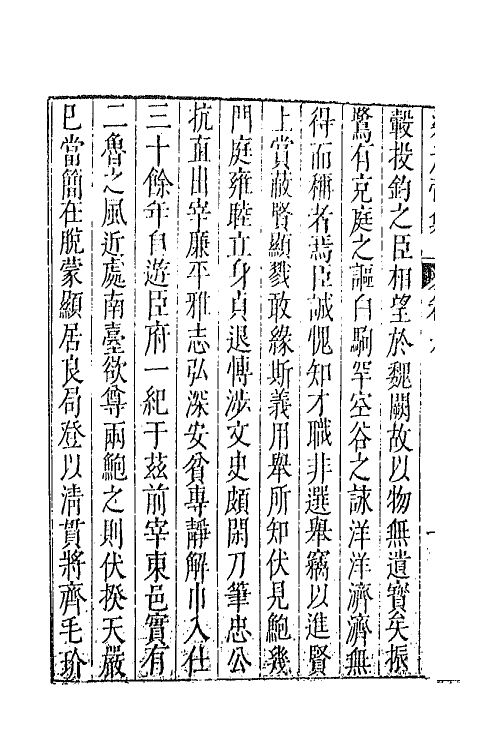 轂投釣之臣相望於魏闕故以物無遺寶矣振
鷺有充庭之謳白駒罕空谷之詠洋洋濟濟無
得而稱者焉臣誠愧知才職非選舉竊以進賢
上賞蔽賢顯戮敢緣斯義用舉所知伏見鮑幾
門庭雍睦立身貞退愽涉文史頗閑刀筆忠公
抗直出宰廉平雅志弘深安貧專靜解巾入仕
三十餘年自遊臣府一紀于茲前宰東邑實有
二魯之風近處南臺欲尊兩鮑之則伏揆天嚴
已當簡在脫蒙顯居良局登以清貫將齊毛玠